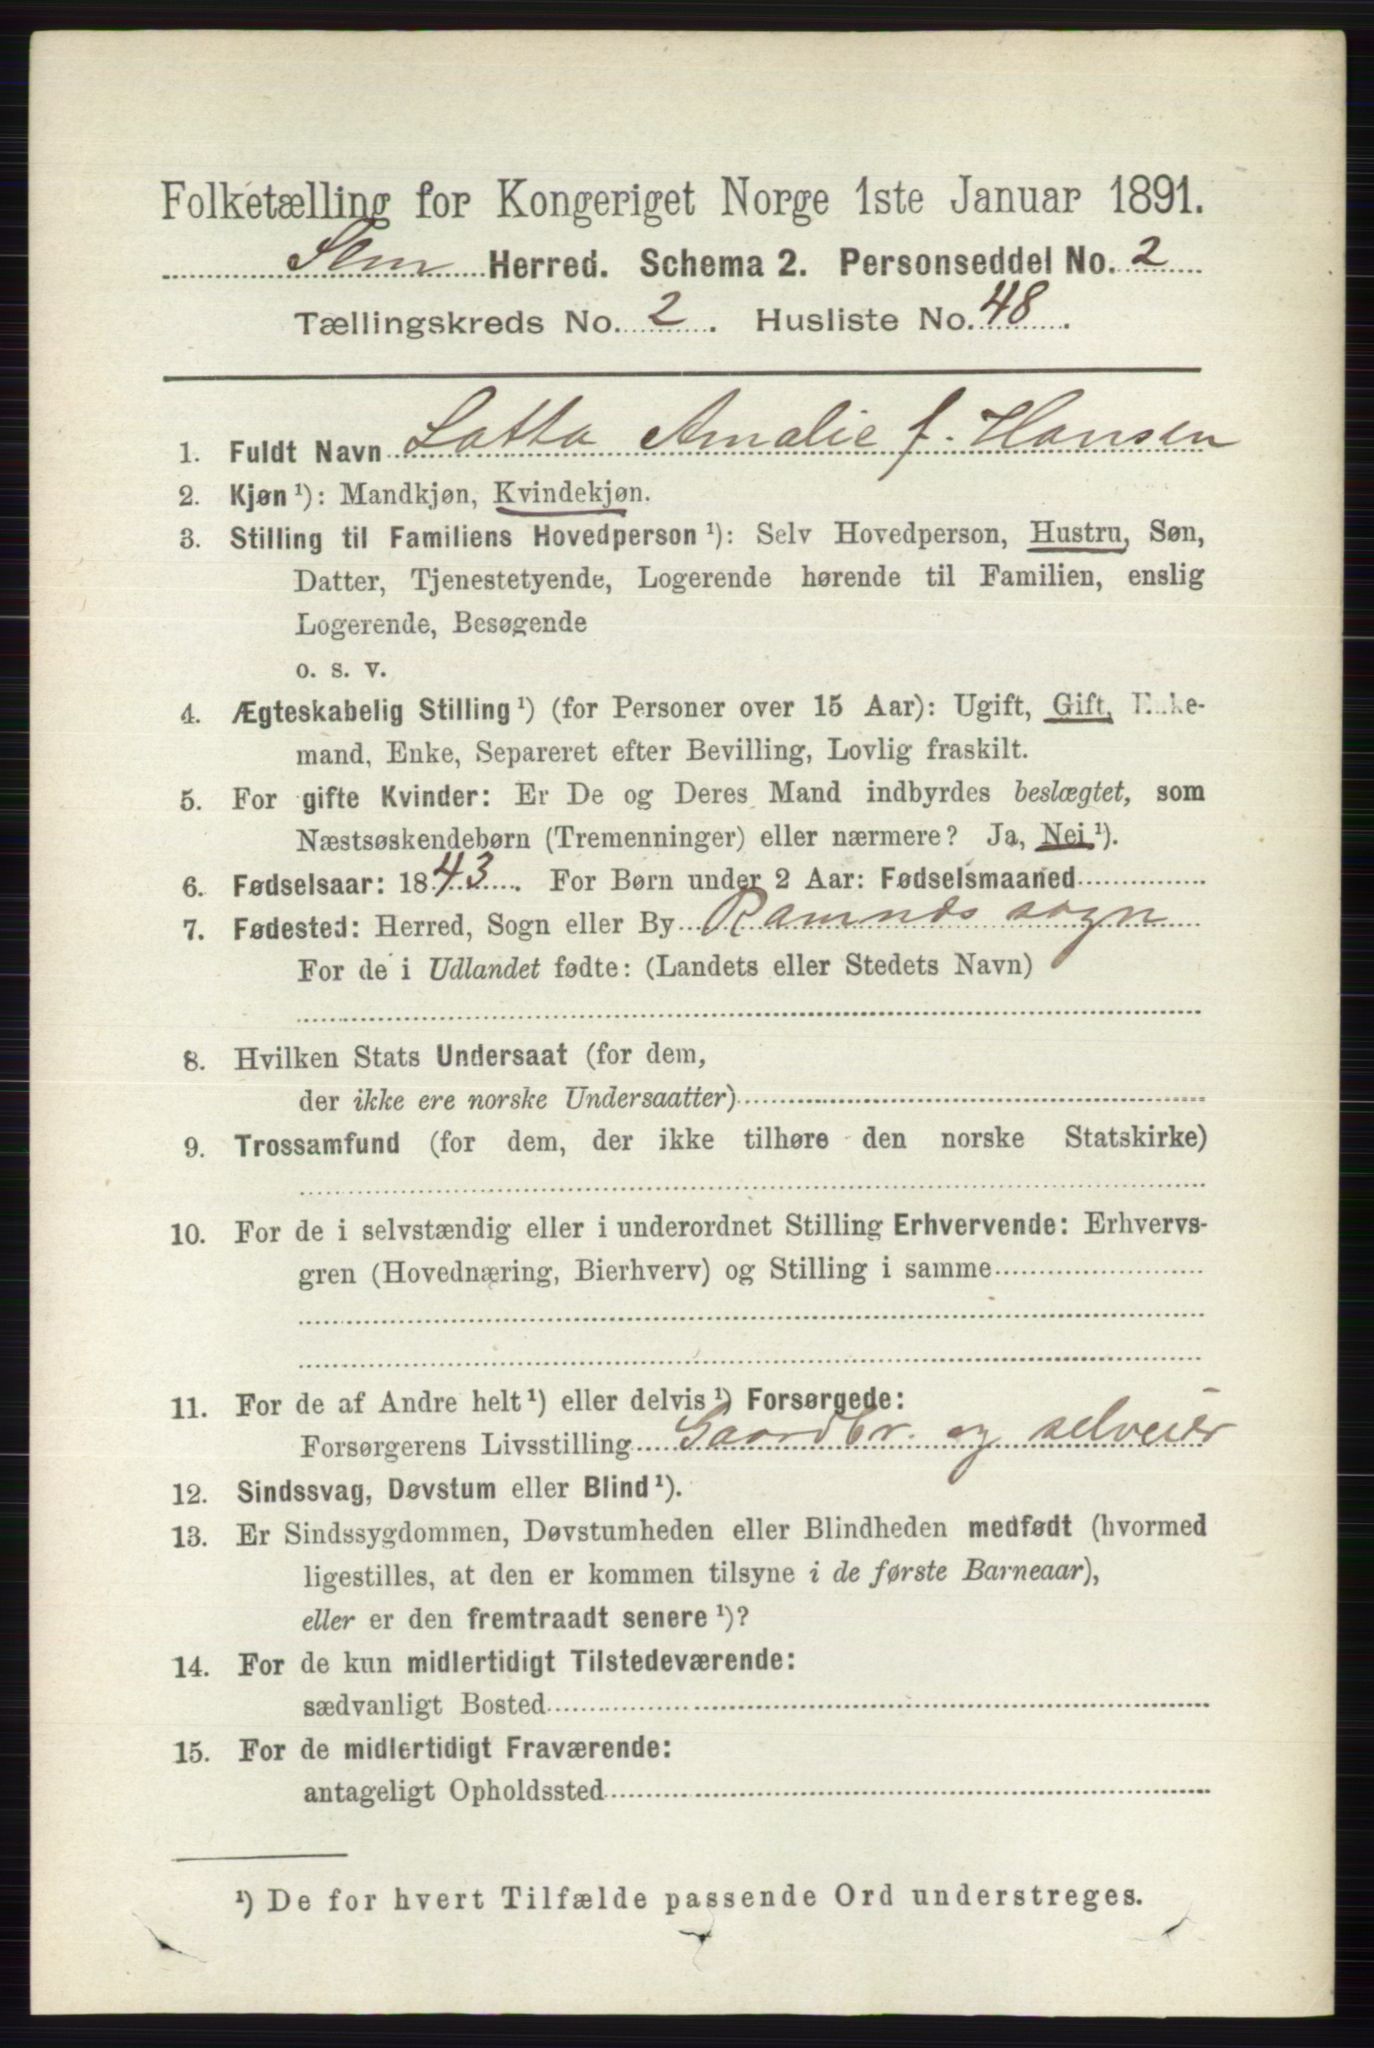 Folketælling for Kongeriget Norge 1ste Januar 1891.
Sem Herred. Schema 2. Personseddel No. 2
Tællingskreds No. 2. Husliste No. 48.
1. Fuldt Navn Lotta Amalie f. Hansen
2. Kjøn ¹): Mandkjøn, Kvindekjøn.
3. Stilling til Familiens Hovedperson ¹): Selv Hovedperson, Hustru, Søn,
Datter, Tjenestetyende, Logerende hørende til Familien, enslig
Logerende, Besøgende
o. s. v.
4. Ægteskabelig Stilling ¹) (for Personer over 15 Aar): Ugift, Gift, Enke-
mand, Enke, Separeret efter Bevilling, Lovlig fraskilt.
5. For gifte Kvinder: Er De og Deres Mand indbyrdes beslægtet, som
Næstsøskendebørn (Tremenninger) eller nærmere? Ja, Nei ¹).
6. Fødselsaar: 1843. For Børn under 2 Aar: Fødselsmaaned
7. Fødested: Herred, Sogn eller By Ramnæs sogn
For de i Udlandet fødte: (Landets eller Stedets Navn)
8. Hvilken Stats Undersaat (for dem,
der ikke ere norske Undersaatter)
9. Trossamfund (for dem, der ikke tilhøre den norske Statskirke)
10. For de i selvstændig eller i underordnet Stilling Erhvervende: Erhvervs-
gren (Hovednæring, Bierhverv) og Stilling i samme
11. For de af Andre helt ¹) eller delvis ¹) Forsørgede:
Forsørgerens Livsstilling Gaardbr. og selveier
12. Sindssvag, Døvstum eller Blind ¹).
13. Er Sindssygdommen, Døvstumheden eller Blindheden medfødt (hvormed
ligestilles, at den er kommen tilsyne i de første Barneaar),
eller er den fremtraadt senere ¹)?
14. For de kun midlertidigt Tilstedeværende:
sædvanligt Bosted
15. For de midlertidigt Fraværende:
antageligt Opholdssted
¹) De for hvert Tilfælde passende Ord understreges.